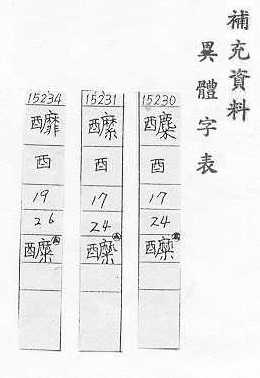 補充資料
異體字表
15230
酉
17
24
15231
醾
酉
17
24
15234
醿
酉
19
26